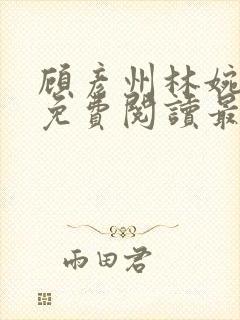 顧彥州林婉
免費閱讀最
雨田君